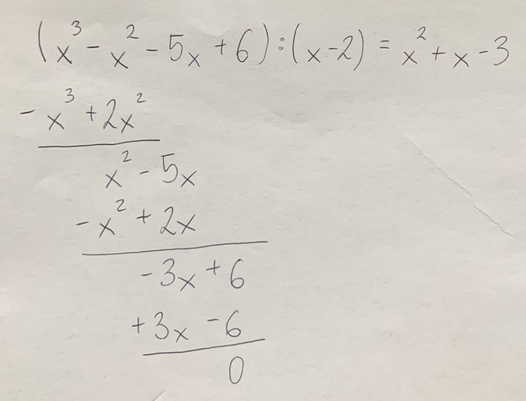 (x³ - x² - 5x + 6) : (x - 2) = x² + x - 3
- x³ + 2x²
x² - 5x
- x² + 2x
- 3x + 6
+ 3x - 6
0